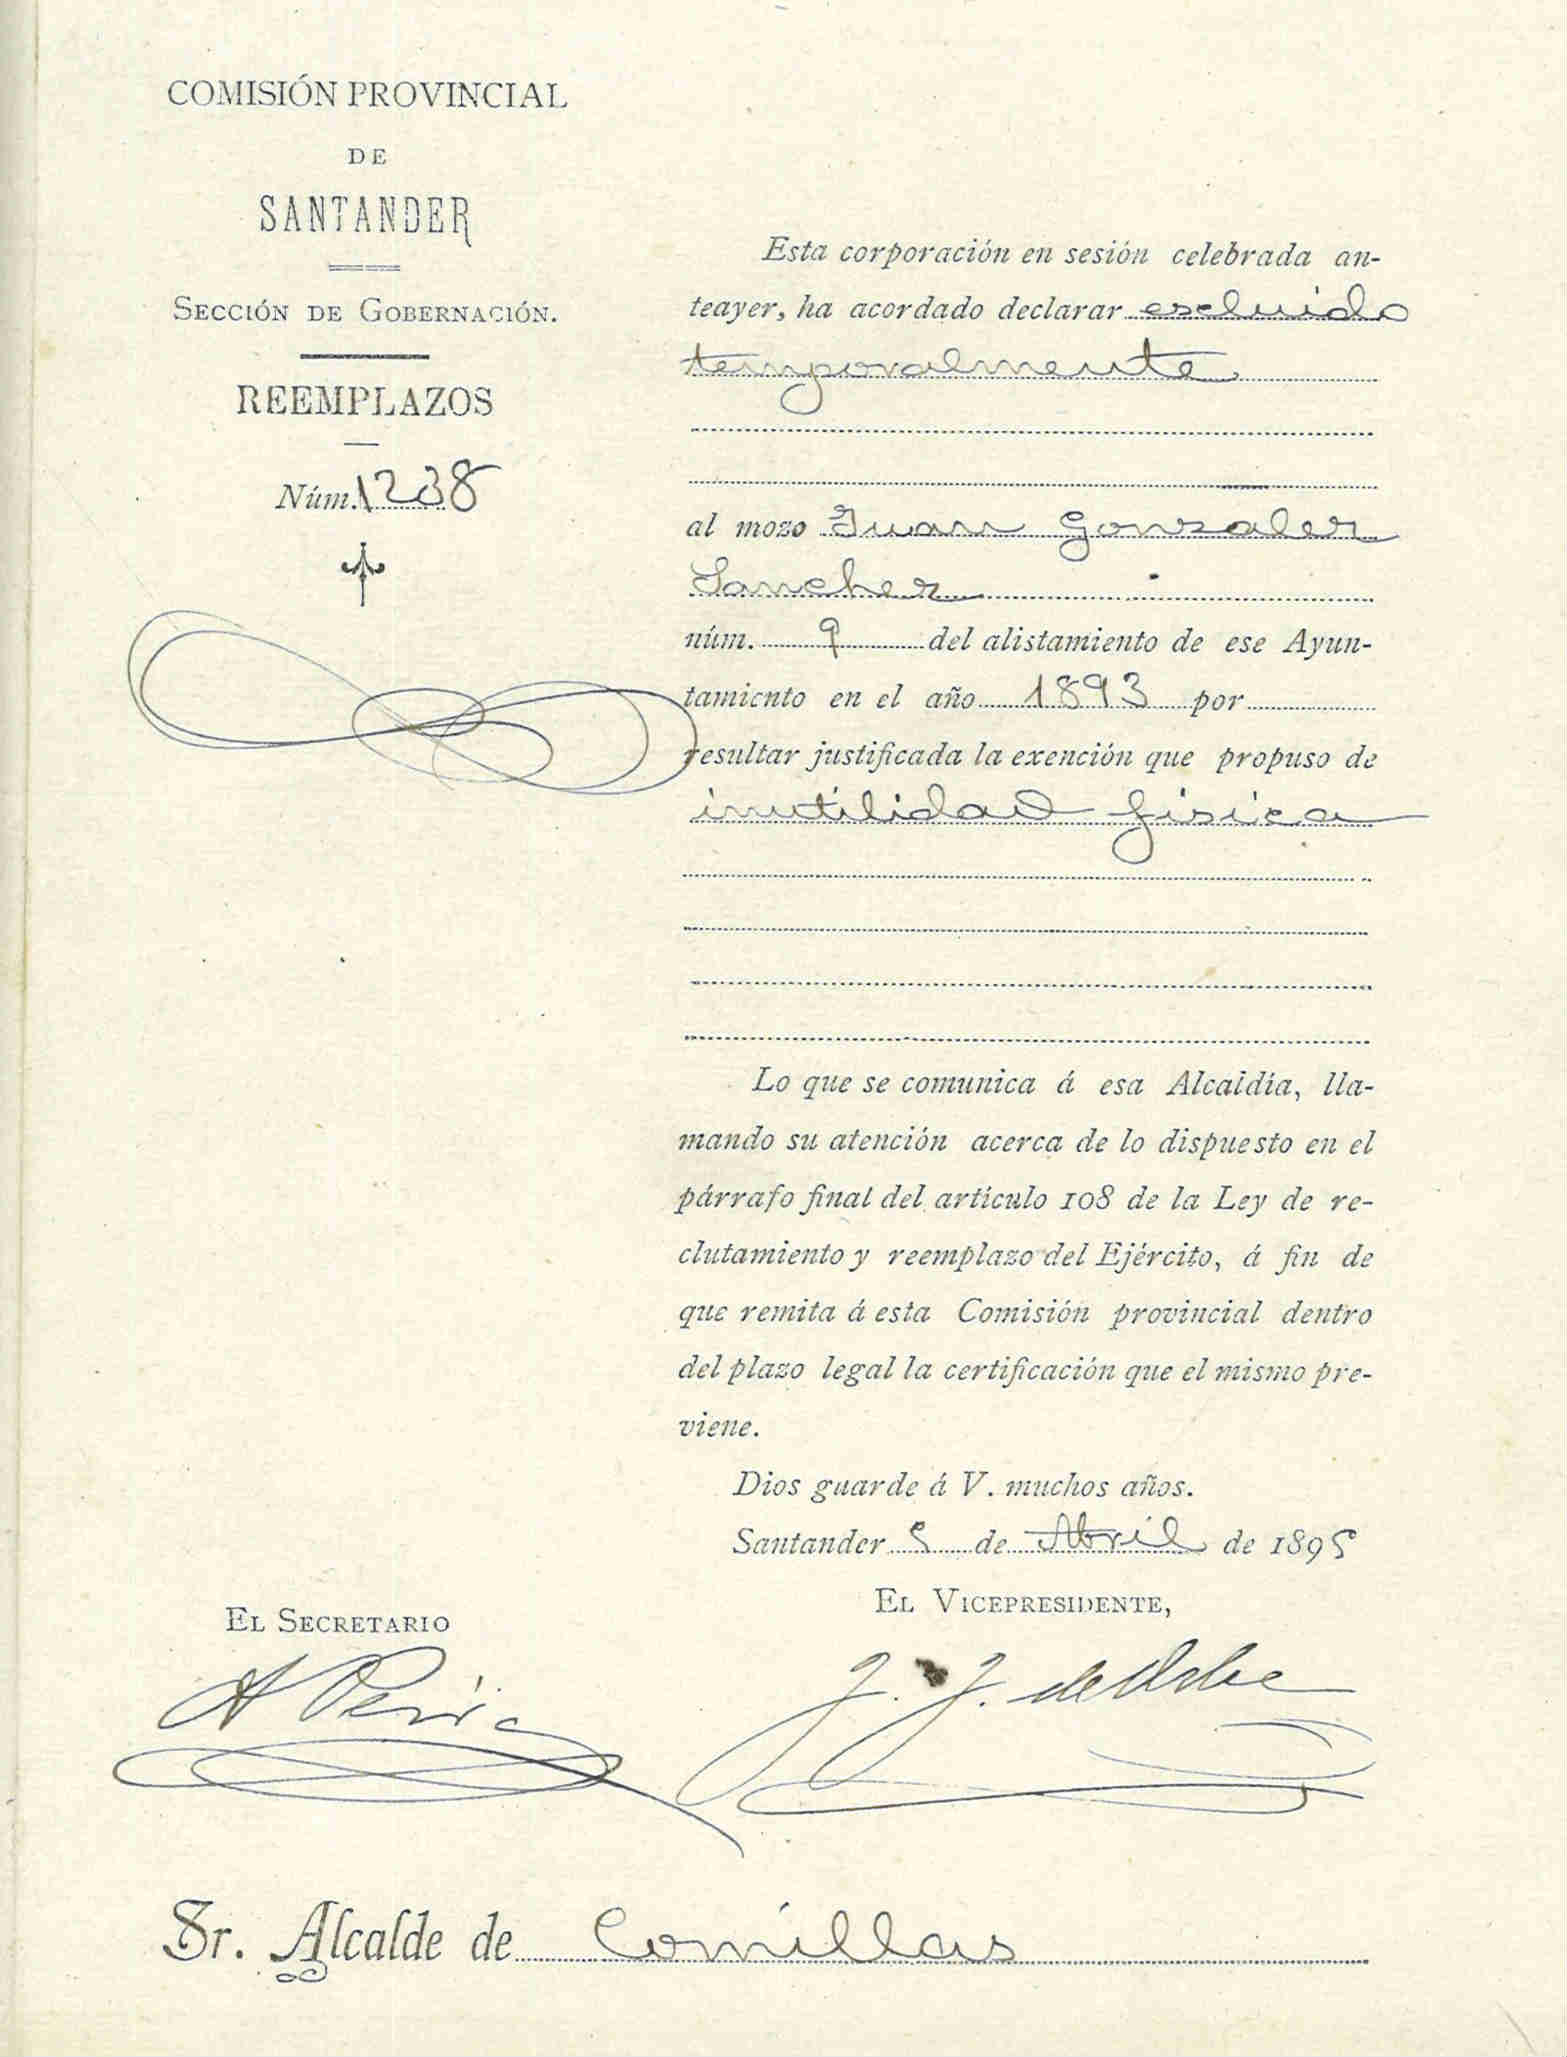 COMISIÓN PROVINCIAL
DE
SANTANDER
SECCIÓN DE GOBERNACIÓN.
REEMPLAZOS
Núm. 1238
Esta corporación en sesión celebrada an-
teayer, ha acordado declarar escluido
temporalmente
al mozo Juan Gonzalez
Sanchez
núm. 9 del alistamiento de ese Ayun-
tamiento en el año 1893 por
resultar justificada la exención que propuso de
inutilidad fisica
Lo que se comunica á esa Alcaldía, lla-
mando su atención acerca de lo dispuesto en el
párrafo final del artículo 108 de la Ley de re-
clutamiento y reemplazo del Ejército, á fin de
que remita á esta Comisión provincial dentro
del plazo legal la certificación que el mismo pre-
viene.
Dios guarde á V. muchos años.
Santander 5 de Abril de 1895
EL VICEPRESIDENTE,
EL SECRETARIO
J. J. de
A
Sr. Alcalde de Comillas